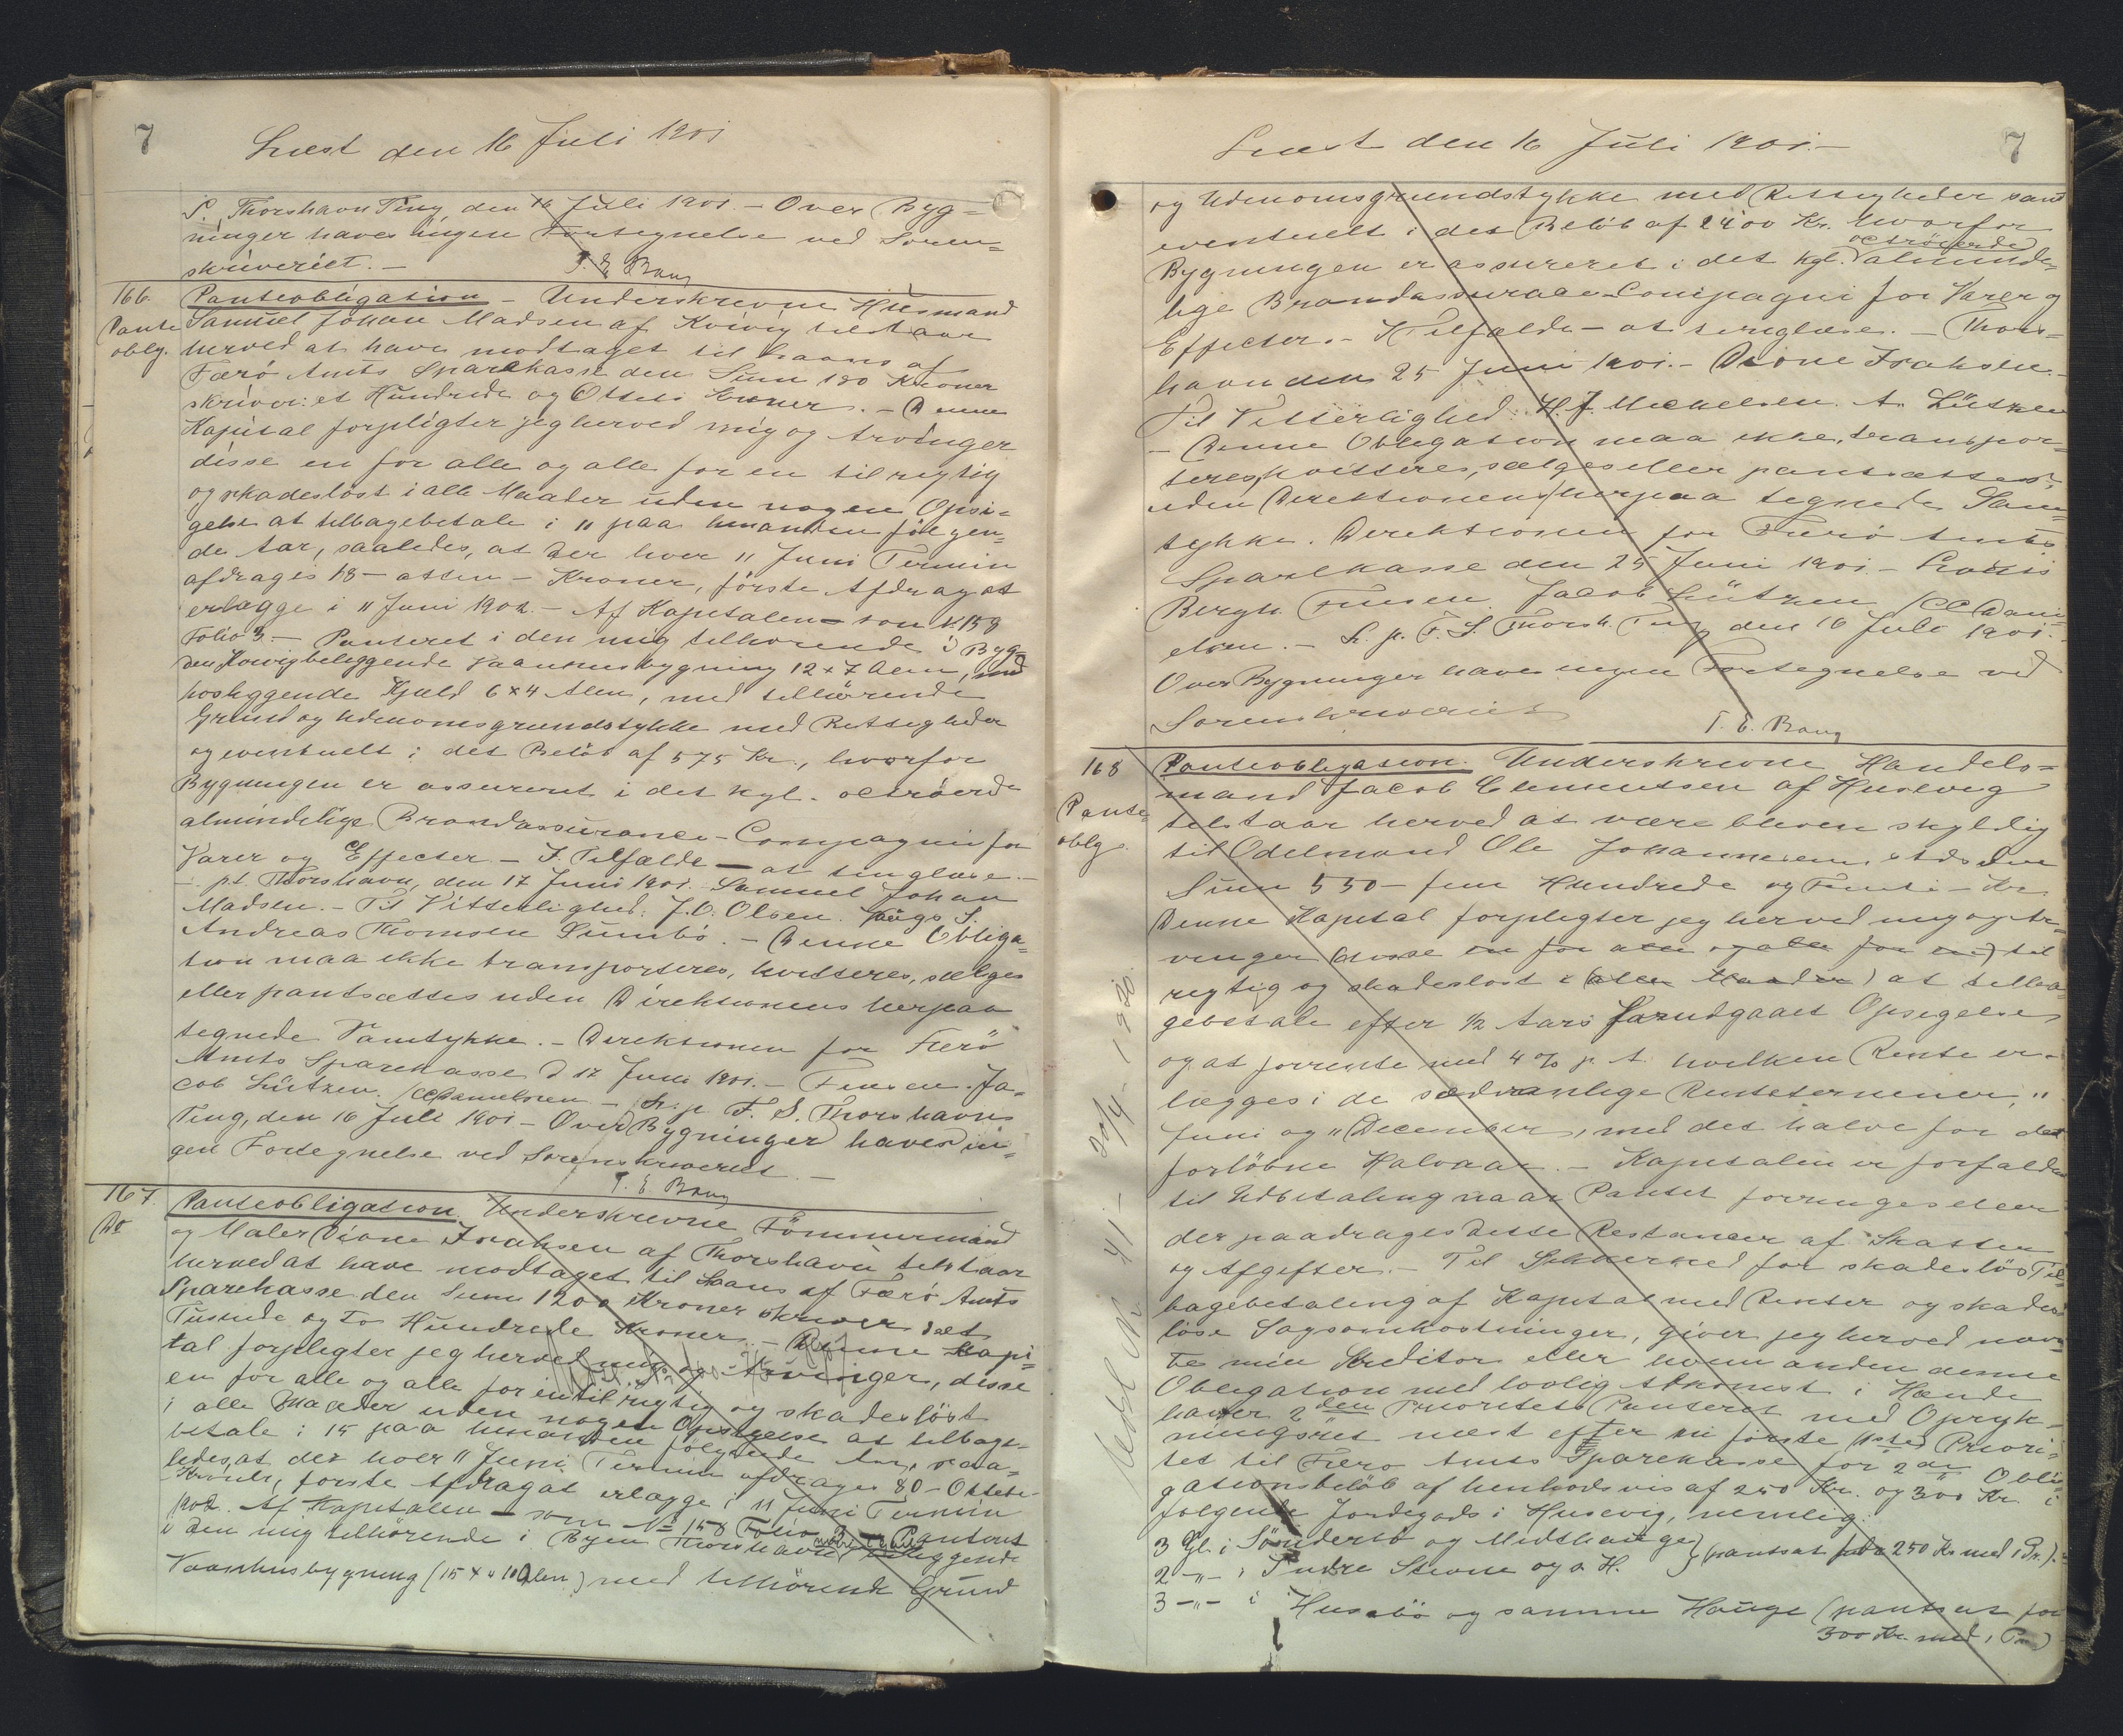 7
Læst den 16 Juli 1901
S. Thorshavn Ting, den 16 Juli 1901. – Over Byg=
ninger haves ingen Fortegnelse ved Soren=
skriveriet. –
T. E Bang
166.
Pante
oblg.
Panteobligation – Underskrevne Husmand
Samuel Johan Madsen af Kvivig tilstaar
herved at have modtaget til Laans af
Færö Amts Sparekasse den Sum 180 Kroner
skriver: et Hundrede og Otteti Kroner. – Denne
Kapital forpligter jeg herved mig og Arvinger
disse en for alle og alle for en til rigtig
og skadeslöst i alle Maader uden nogen Opsi=
gelse at tilbagebetale i 11 paa hinanden fölgen=
de Aar, saaledes, at der hver 11 Juni Termin
afdrages 18 – atten – Kroner, förste Afdrag at
erlægge i 11 Juni 1902. – Af Kapitalen – som № 159
Folio 3. – Panteret i den mig tilhörende i Byg=
den Kvivig beliggende Vaanhusbygning 12 x 7 Alen, med
hosliggende Hjæld 6 x 4 Alen, med tilhörende
Grund og Udenomsgrundstykke med Rettigheder
og eventuelt i det Belöb af 575 Kr., hvorfor
Bygningen er assureret i det kgl. octröierede
almindelige Brandassurance-Compagni for
Varer og Effecter – I. Tilfælde – at tinglæse. –
– pt. Thorshavn, den 17 Juni 1901. Samuel Johan
Madsen. – Til Vitterlighed: J. C. Olsen.
Andreas Thomsen Sumbö. – Denne Obliga=
tion maa ikke transporteres, kvitteres, sælges
eller pantsættes uden Direktionens herpaa
tegnede Samtykke. – Direktionen for Færö
Amts Sparekasse d 17 Juni 1901. – Finsen. Ja=
cob Lützen. CC Danielsen – L. p. F. S. Thorshavns
Ting, den 16 Juli 1901 – Over Bygninger haves in=
gen Fortegnelse ved Sorenskriveriet. –
T. E Bang
167.
Do
Panteobligation Underskrevne Tömmermand
og Maler Dione Isaksen af Thorshavn tilstaar
herved at have modtaget til Laans af Færö Amts
Sparekasse den Sum 1200 Kroner skriver eet
Tusinde og To Hundrede Kroner. – Denne Kapi=
tal forpligter jeg herved mig og Arvinger, disse
en for alle og alle for en til rigtig og skadeslöst
i alle Maader uden nogen Opsigelse at tilbage=
betale i 15 paa hinanden fölgende Aar, saa=
ledes, at der hver 11 Juni Termin afdrages 80 – Otteti
Kroner, förste Afdrag at erlægge i 11 Juni Termin
1902. Af Kapitalen – som № 158 Folio 3 – Panteret
i den mig tilhörende i Byen Thorshavn beliggende
Vaanhusbygning (15 x 10 Alen) med tilhörende Grund
Læst den 16 Juli 1901. –
7
og Udenomsgrundstykke med Rettigheder samt
eventuelt i det Belöb af 2400 Kr. hvorfor
octröierede
Bygningen er assureret i det kgl. alminde=
lige Brandassurance-Compagni for Varer og
Effecter. – I Tilfælde – at tinglæse. – Thors=
havn den 25 Juni 1901. – Dione Isaksen. –
Til Vitterlighed: H. J. Mickelsen. A. Lützen
– Denne Obligation maa ikke transpor=
teres, kvitteres, sælges eller pantsættes
uden Direktionens herpaa tegnede Sam=
tykke. Direktionen for Færö Amts
Sparekasse den 25 Juni 1901. – Louis
Bergh. Finsen Jacob Lützen CC Dani=
elsen. – L. p. F. S. Thorsh. Ting den 16 Juli 1901. –
Over Bygninger haves ingen Fortegnelse ved
Sorenskriveriet
T. E. Bang
168
Pante=
oblg.
Panteobligation. Underskrevne Handels=
mand Jacob Clementsen af Husevig
tilstaar herved at være bleven skyldig
til Odelsmand Ole Johannesen stds den
Sum 550 – fem Hundrede og Femti – Kr.
Denne Kapital forpligter jeg herved mig og Ar=
vinger (disse en for alle og alle for en) til
rigtig og skadeslöst i (alle Maader) at tilba=
gebetale efter 1/2 Aars forudgaaet Opsigelse
og at forrente med 4 % p. A. hvilken Rente er=
lægges i de sædvanlige Renteterminer, 11
Juni og 11 December, med det halve for det
forlöbne Halvaar. – Kapitalen er forfalden
til Udbetaling naar Pantet forringes eller
der paadrages dette Restancer af Skatter
og Afgifter. – Til Sikkerhed for skadeslös Til=
bagebetaling af Kapital med Renter og skades=
löse Sagsomkostninger, giver jeg herved nævn=
te min Kreditor eller hvem anden denne
Obligation med lovlig Adkomst i Hænde
haver 2den Prioritets Panteret med Opryk=
ningsret næst efter en förste 1sted Priori=
tet til Færö Amts Sparekasse for 2de Obli=
gationsbelöb af henholdsvis af 250 Kr. og 300 Kr. i
fölgende Jordegods i Husevig, nemlig:
3 Gl. i Sönderbö og Midthauge } (pantsat for 250 Kr med 1 Pr.).
2 –"– i Indre Stovne og s. H.
3 –"– i Husebö og samme Hauge (pantsat for
300 Kr. med 1 Pr.)